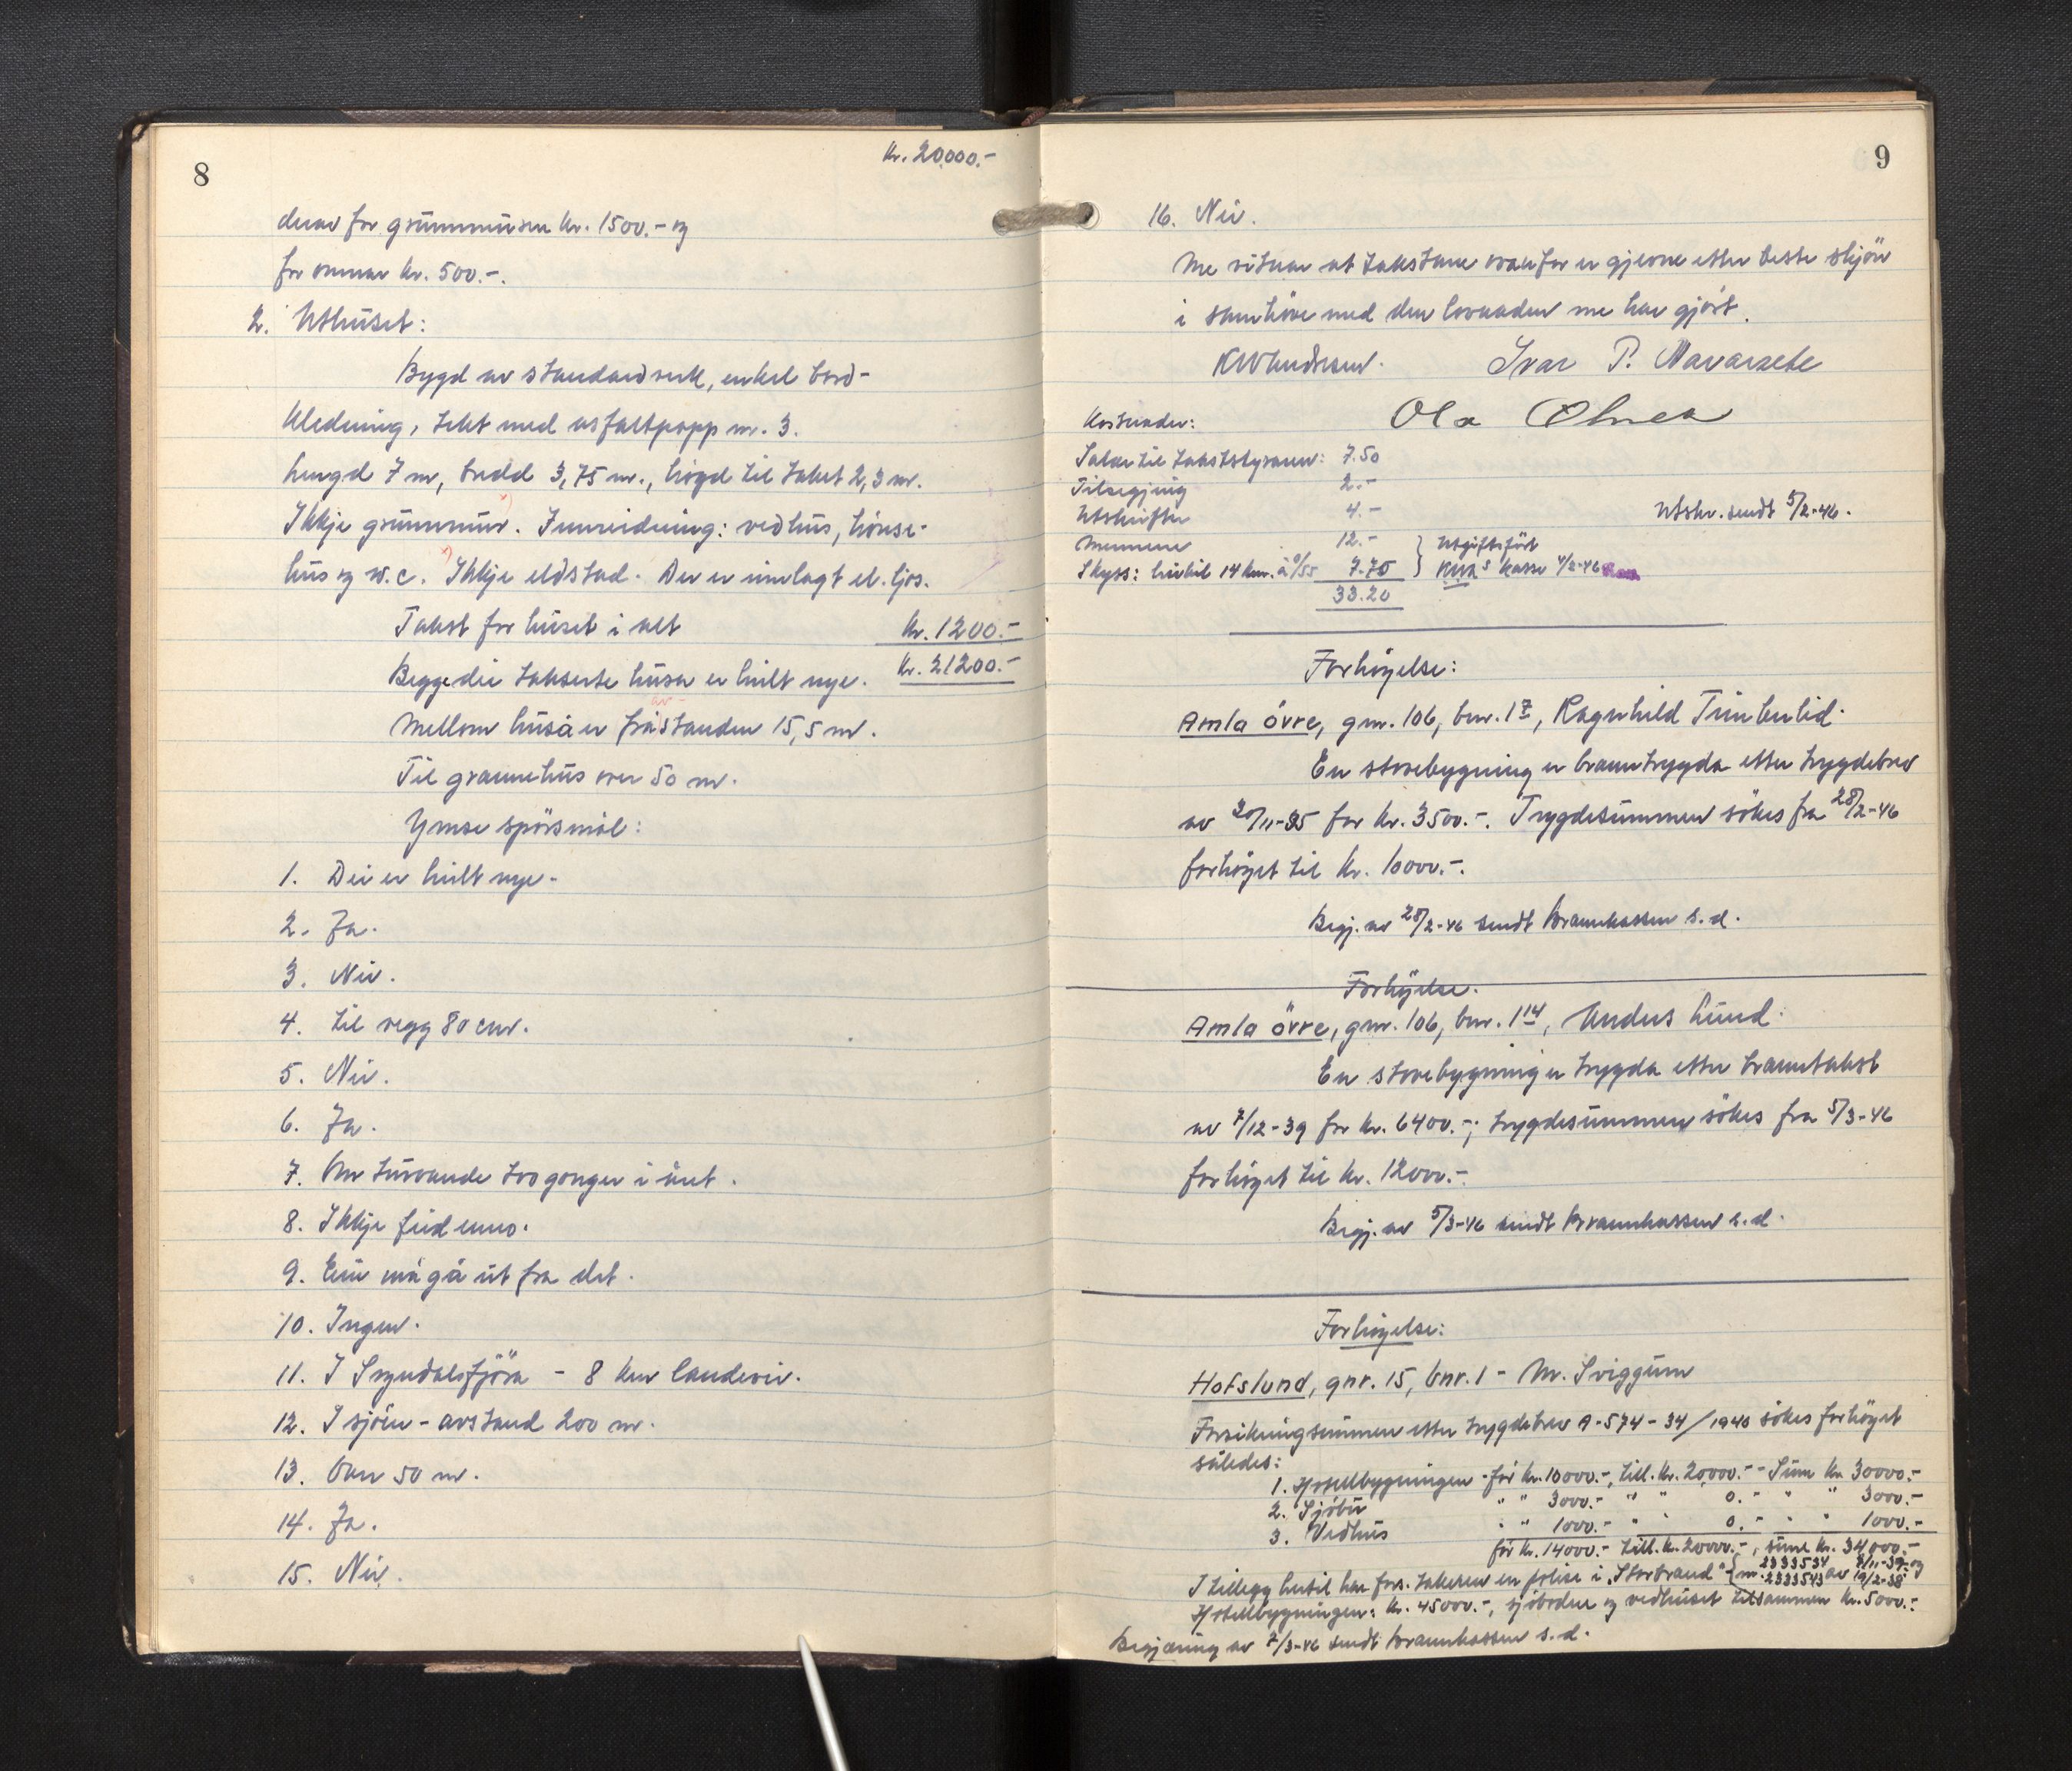 8
Kr. 20000.-
derav for grunnmuren kr. 1500.- og
for omnar kr. 500.-.
2. Uthuset:
Bygd av standardverk, enkel bord-
kledning, tekt med asfaltpapp nr. 3.
Lengd 7 m, bredd 3,75 m., högd til taket 2,3 m.
Ikkje grunnmur. Innreidning: vedhus, hönse-
hus og w.c. Ikkje eldstad. Der er innlagt el. ljos.
Takst for huset i alt kr. 1200.-
Kr. 21200.-
Begge dei takserte husa er heilt nye.
Mellom husa er fråstanden 15,5 m.
Til grannehus over 50 m.
Ymse spörsmål:
1. Dei er heilt nye.
2. Ja.
3. Nei.
4. til vegg 80 cm.
5. Nei.
6. Ja.
7. Om turvande two gonger i året.
8. Ikkje feid enno.
9. Ein må gå ut fra det.
10. Ingen.
11. I Sogndalsfjöra - 8 km landevei.
12. I sjöen - avstand 200 m.
13. Over 50 m.
14. Ja.
15. Nei.
9
16. Nei.
Me vitnar at takstane ovanfor er gjevne etter beste skjön
i samhöve med den lovnaden me har gjort.
Ivar P. Navarsete
Kostnader:
Salær til takststyraren: 7.50
Tilsegjing 2.-
Utskrifter 4.-
Utskr. sendt 5/2-46.
Mennene 12.-
Utgiftsfört
Skyss: hivbil 14 km. à 0/55 7.70
kasse 4/2-46
33.20
Forhöyelse:
Amla övre, gnr. 106, bnr. 17, Ragnhild Timberlid.
En stovebygning er branntrygda etter trygdebrev
av 30/11-35 for kr. 3500.-. Trygdesummen sökes fra 28/2-46
forhöyet til kr. 10000.-.
Begj. av 28/2-46 sendt brannkassen s.d.
Forhöyelse.
Amla övre, gnr. 106, bnr. 114, Anders Lund.
En stovebygning er trygda etter branntakst
av 7/12-39 for kr. 6400.-; trygdesummen sökes fra 5/3-46
forhöyet til kr. 12000.-.
Begj. av 5/3-46 sendt brannkassen s.d.
Forhöyelse:
Hofslund, gnr. 15, bnr. 1 - M. Sviggum
Forsikringsummen etter trygdebrev A-574-34/1940 sökes forhöyet
således:
1. Hotellbygningen för kr. 10000.-, till. kr. 20000.- - Sum kr. 30000.-
2. Sjöbu " " 3000.- " " 0.- " " 3000.-
3. Vedhus " " 1000.- " " 0.- " " 1000.-
för kr. 14000.- till. kr. 20000.-, sum kr. 34000.-
I tillegg hertil har fors. takeren en polise i "Storbrand" nr. 2333534 2333543 av 8/11-39 og 19/2-38
Hotellbygningen: kr. 45000.-, sjöboden og vedhuset tilsammen kr. 5000.-
Begjæring av 7/3-46 sendt brannkassen s.d.